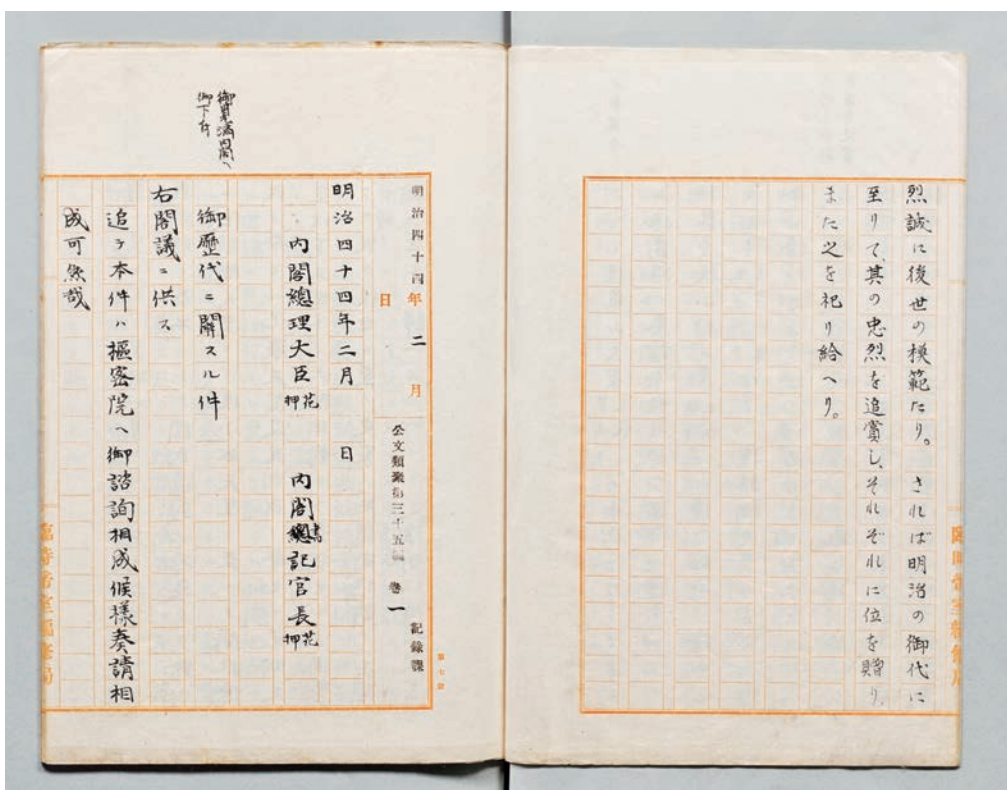 烈誠に後世の模範たり。されば明治の御代に
至りて、其の忠烈を追賞し、それぞれに位を贈り、
また之を祀り給へり。
明治四十四年二月
日
公文類聚第三十五編 巻一
記録課
明治四十四年二月 日
内閣總理大臣 花押 内閣書記官長 花押
御歴代ニ関スル件
右閣議ニ供ス
追テ本件ハ樞密院ヘ御諮詢相成候様奏請相
成可然哉
御下付
臨時帝室編修局